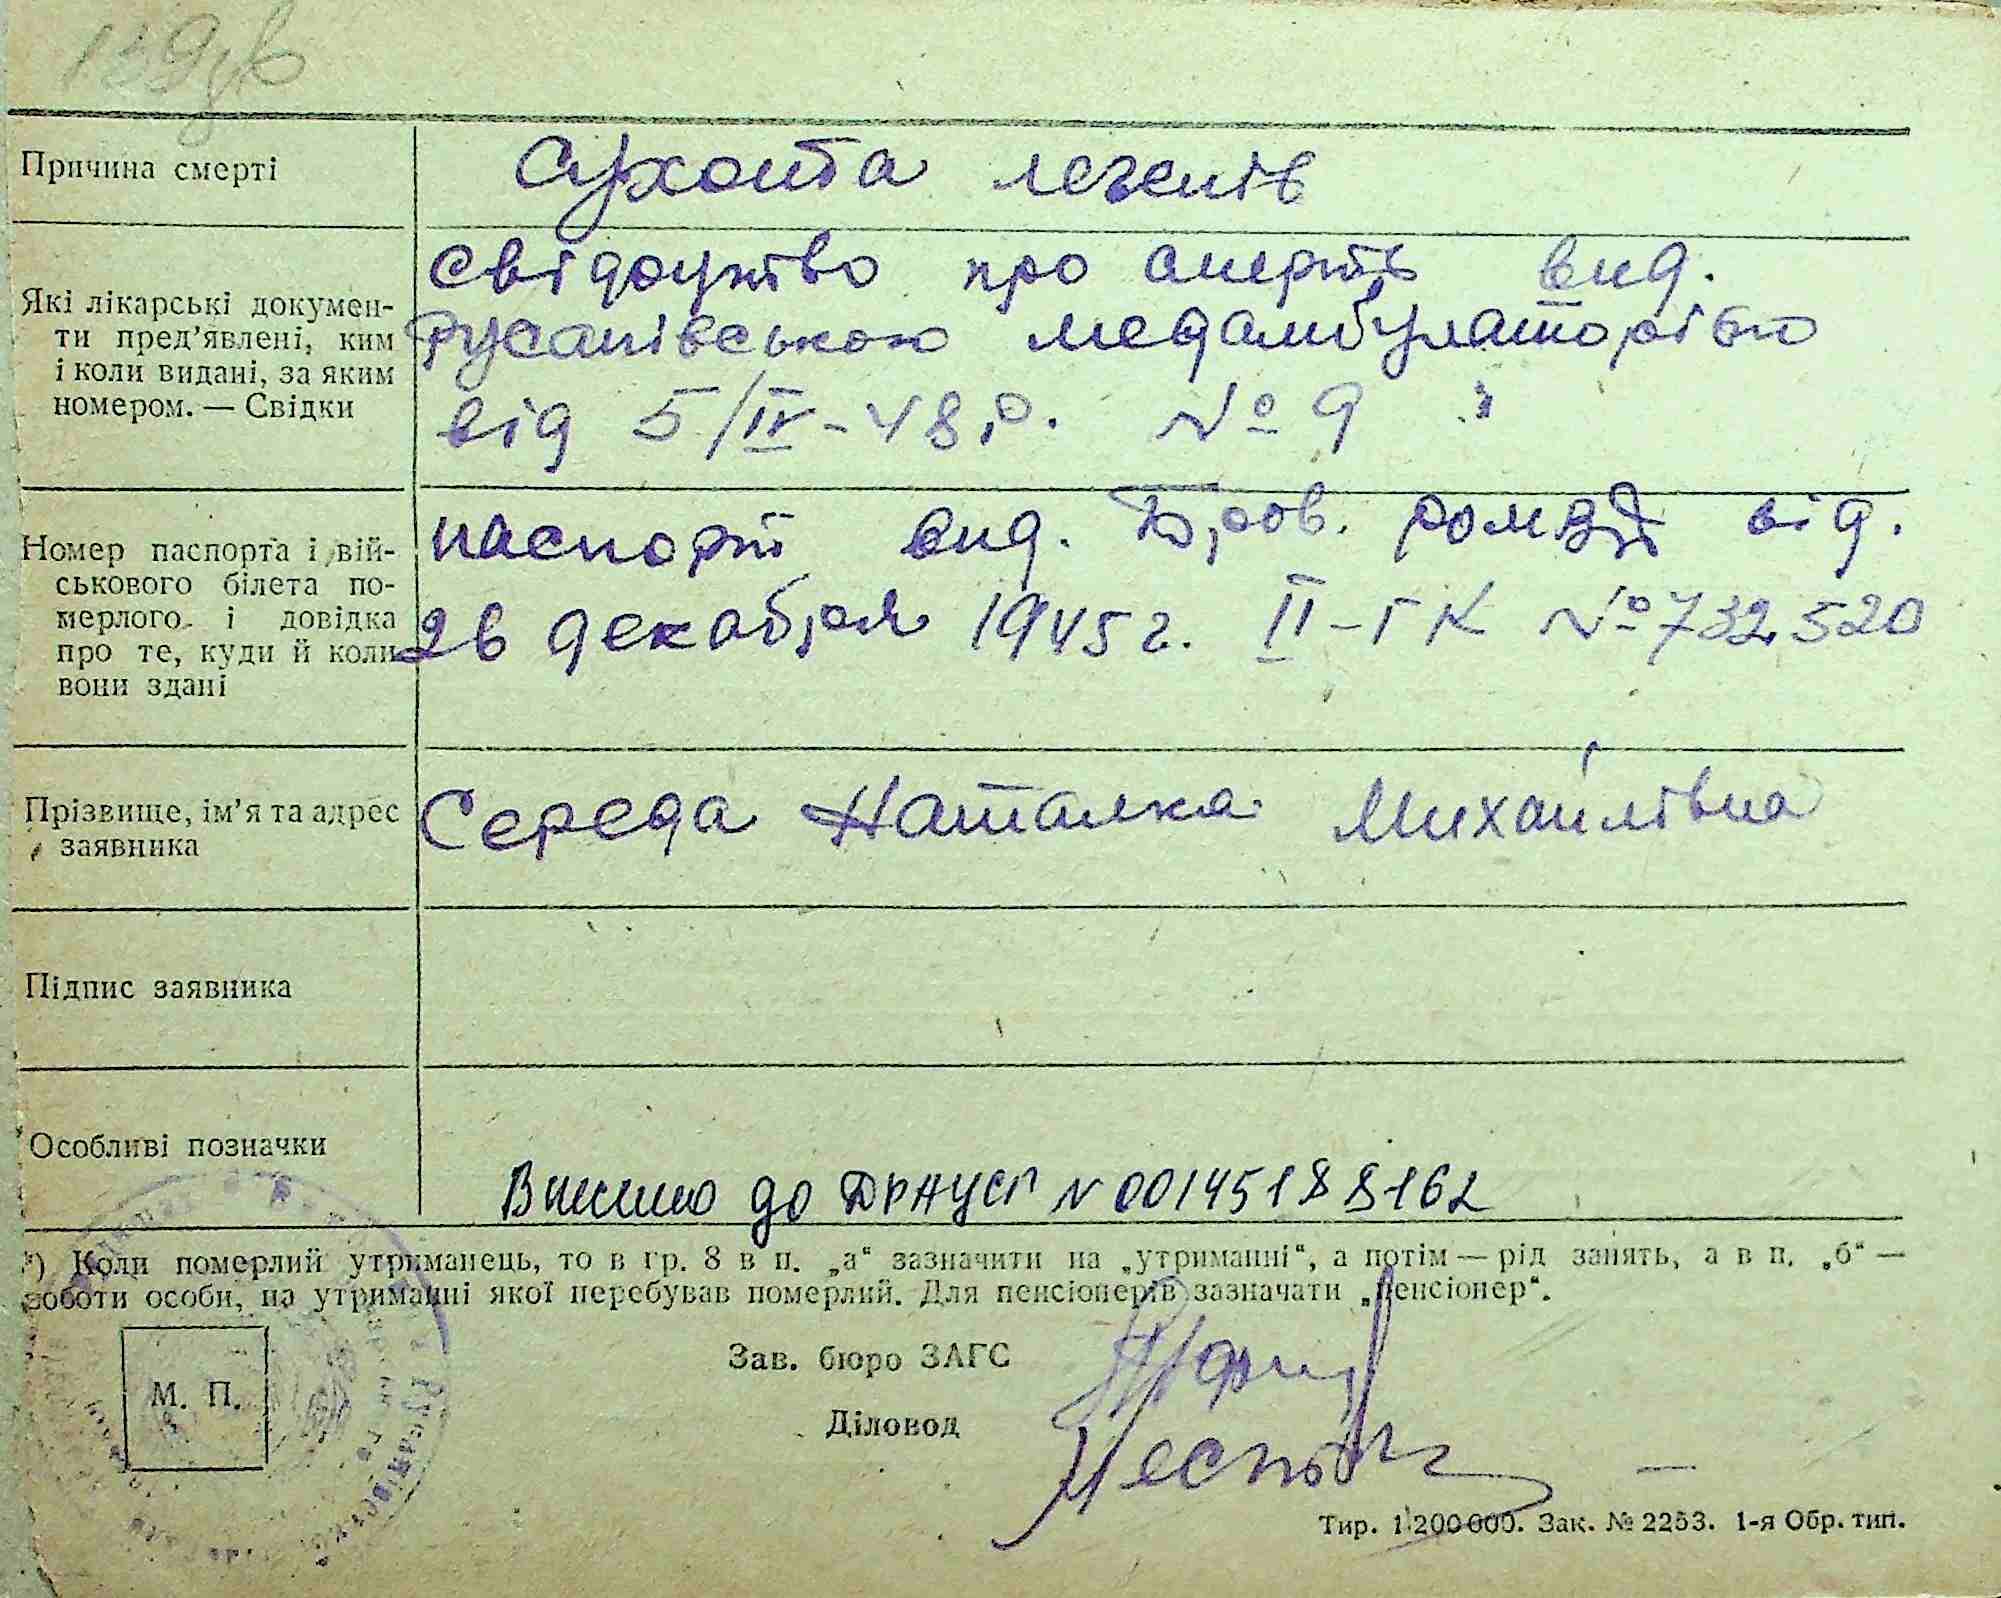 139
Причина смерті
Сухота легенів
Які лікарські докумен-
ти пред’явлені, ким
і коли видані, за яким
номером. — Свідки
свідоцтво про смерть вид.
Русанівською медамбулаторією
від 5/IV-48 р. № 9
Номер паспорта і вій-
ськового білета по-
мерлого і довідка
про те, куди й коли
вони здані
паспорт вид. Бров. ромвд від.
26 декабря 1945 г. II-ГК № 732520
Прізвище, ім’я та адрес
заявника
Середа Наталка Михайлівна
Підпис заявника
Особливі позначки
Внесено до ДРАЦСГ N 00145188162
*) Коли померлий утриманець, то в гр. 8 в п. „а“ зазначити на „утриманні“, а потім — рід занять, а в п. „б“ —
роботи особи, на утриманні якої перебував померлий. Для пенсіонерів зазначати „пенсіонер“.
М. П.
Зав. бюро ЗАГС
Діловод
Тир. 1 200 000. Зак. № 2253. 1-я Обр. тип.